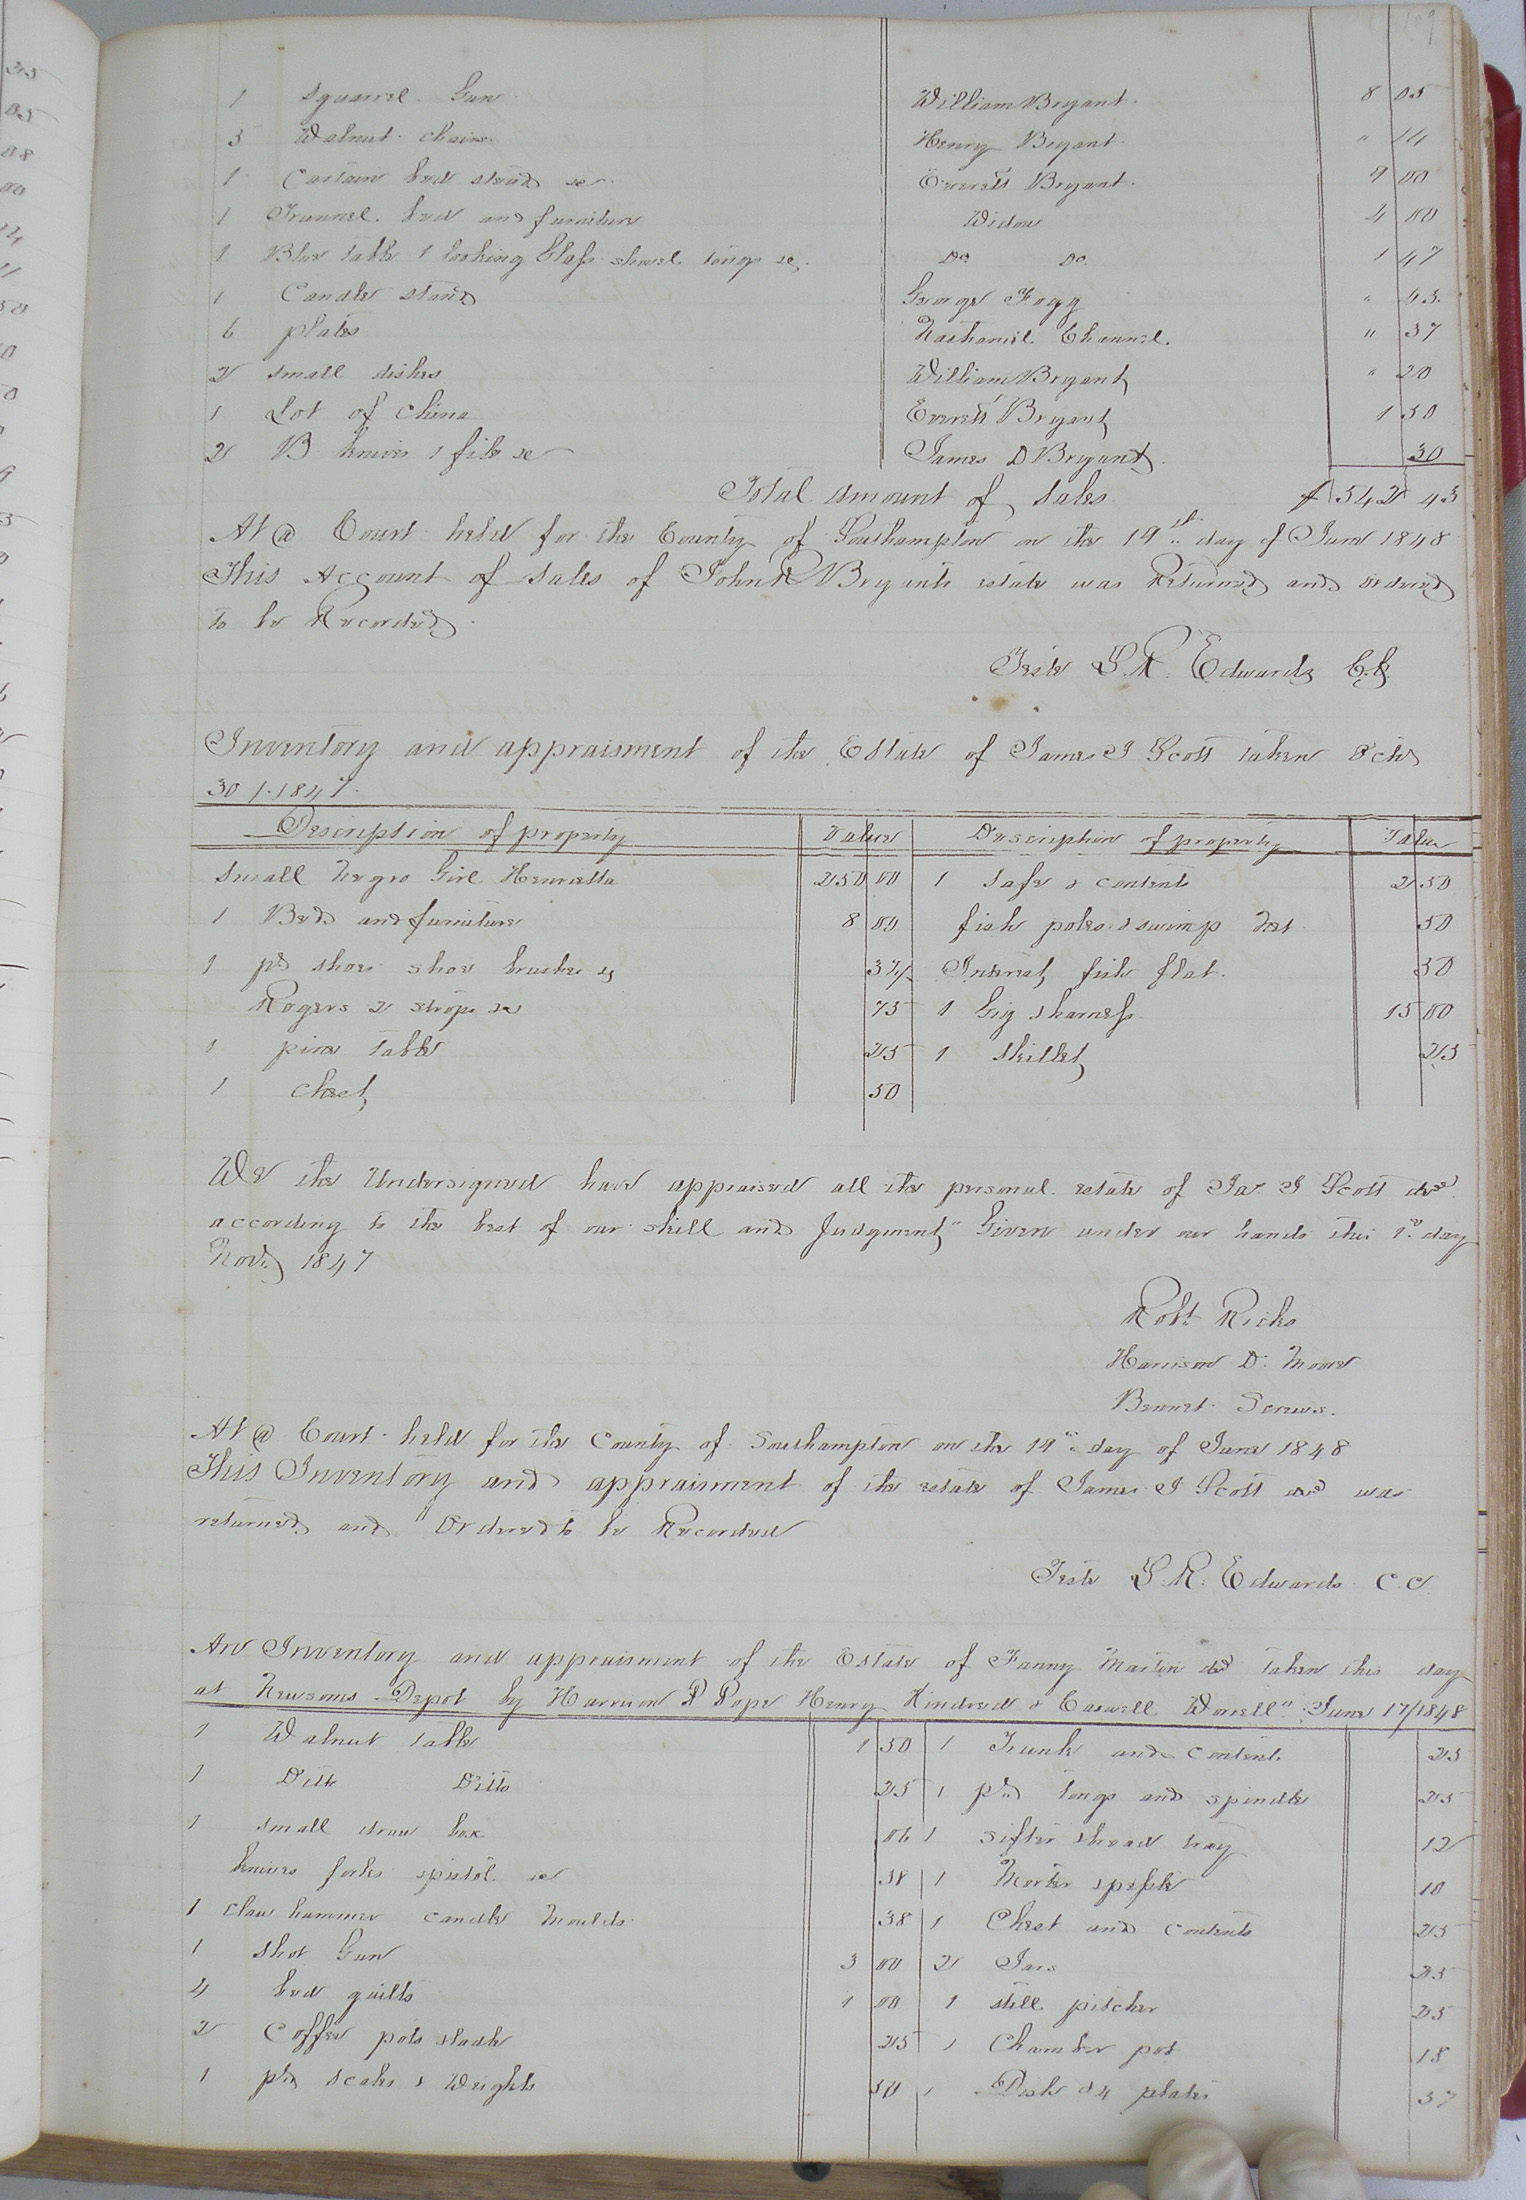 109
1 Squarrel Gun William Bryant 8 05
3 Walnut chairs Henry Bryant " 14
1 Curtain bed stead &c Everett Bryant 9 00
1 Trunnel bed and furniture Widow 4 00
1 Blue table 1 looking Glass shovel tongs &c Do Do 1 47
1 Candle stand George Fogg " 43
6 plates Nathaniel Channel " 37
2 small dishes William Bryant " 20
1 Lot of China Everett Bryant 1 50
2 B knives 1 file &c James D Bryant 30
Total amount of Sales $ 542 43
At a Court held for the County of Southampton on the 19th day of June 1848
This Account of Sales of John R Bryants estate was Returned and ordered
to be Recorded
Teste L. R. Edwards C.C.
Inventory and appraisment of the Estate of James J Scott taken Octr
30 / 1847
Description of property Value Description of property Value
Small Negro Girl Henrietta 250 00 1 Safe & contents 2 50
1 Bed and furniture 8 00 fish poles & swimp Net 50
1 pr shoes shoe brushes & 37½ Interest fish flat 50
Rogers 2 strops &c 75 1 Gig & harness 15 00
1 pine table 25 1 Skillet 25
1 chest 50
We the Undersigned have appraised all the personal estate of Jas J Scott decd
according to the best of our skill and Judgment" Given under our hands this 1st day
Novr 1847
Robt Ricks
Harrison D. Moore
Bennet Screws.
At a Court held for the County of Southampton on the 19th day of June 1848
This Inventory and appraisment of the estate of James J Scott decd was
returned and Ordered to be Recorded
Teste L. R. Edwards C.C.
An Inventory and appraisment of the Estate of Fanny Martin decd taken this day
at Newsoms Depot by Harrison P Pope Henry Kindred & Caswell Worrell" June 17/1848
1 Walnut table 1 50 1 Trunk and content 25
1 Ditto Ditto 25 1 pr tongs and spindle 25
1 small draw box 06 1 sifter & bread tray 12
knives forks & pistol &c 38 1 Morter & pessle 10
1 claw hammer candle moulds 38 1 Chest and contents 25
1 Shot Gun 3 00 2 Jars 25
4 bed quilts 1 00 1 still pitcher 25
2 Coffee pots 25 1 Chamber pot 18
1 pr Scales & Weights 50 1 Dish & 4 plates 37